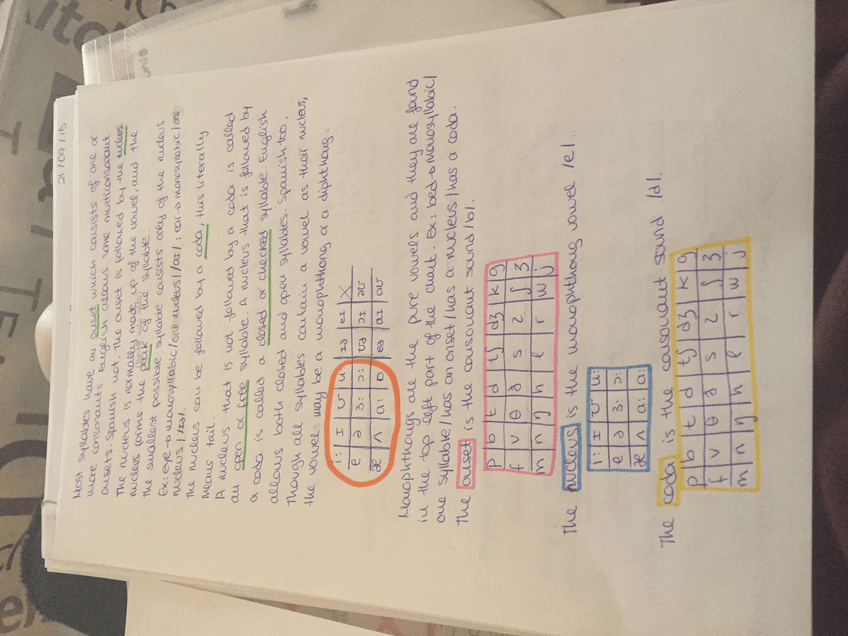 21/09/15
Most syllables have an onset which consists of one or
more consonants. English allows some multiconsonant
onsets. Spanish not. The onset is followed by the nucleus.
The nucleus is normally made up of the vowel, and the
nucleus forms the peak of the syllable.
The smallest possible syllable consists only of the nucleus.
Ex: eye→monosyllabic/one nucleus/ /aɪ/; ear→monosyllabic/one
nucleus/
The nucleus can be followed by a coda, this literally
means tail.
A nucleus that is not followed by a coda is called
an open or free syllable. A nucleus that is followed by
a coda is called a closed or checked syllable. English
allows both closed and open syllables. Spanish too.
Though all syllables contain a vowel as their nucleus,
the vowel may be a monophthong or a diphthong.
i: I ʊ u: ɪə eɪ X
e ə ɜ: ɔ: ʊə ɔɪ əʊ
æ ʌ a: ɒ eə aɪ aʊ
Monophthongs are the pure vowels and they are found
in the top left part of the chart. Ex: bed→monosyllabic/
one syllable/has an onset/has a nucleus/has a coda.
The onset is the consonant sound /b/.
p b t d tʃ dʒ k g
f v θ ð s z ʃ ʒ
m n ŋ h l r w j
The nucleus is the monophthong vowel /e/.
i: I ʊ u:
e ə ɜ: ɔ:
æ ʌ a: a:
The coda is the consonant sound /d/.
p b t d tʃ dʒ k g
f v θ ð s z ʃ ʒ
m n ŋ h l r w j